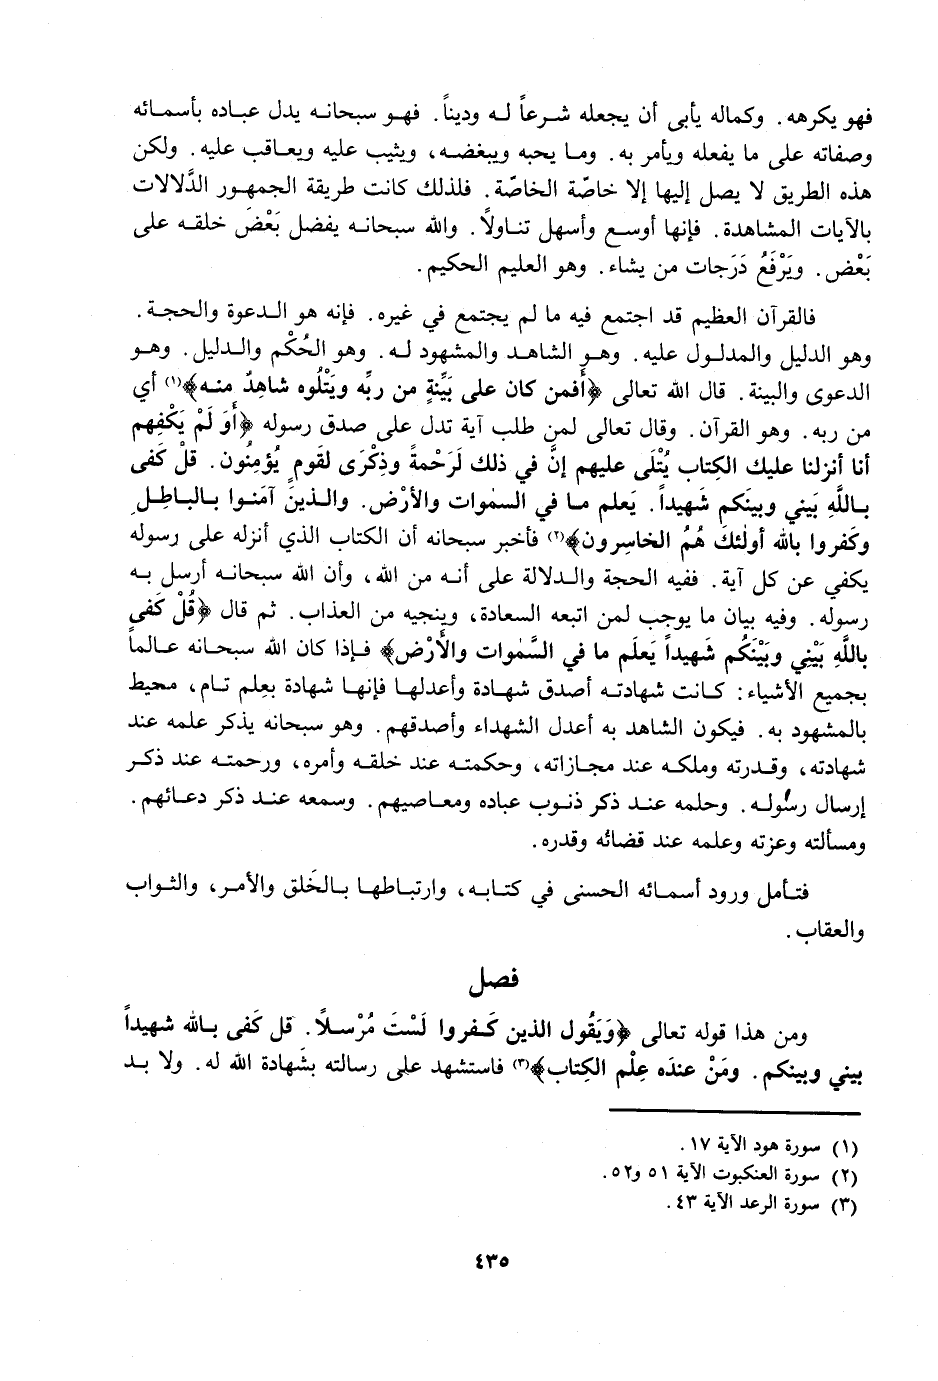 فهو يكرهه. وكماله يأبى أن يجعله شرعاً له وديناً. فهو سبحانه يدل عباده بأسمائه
وصفاته على ما يفعله ويأمر به. وما يحبه ويبغضه، ويثيب عليه ويعاقب عليه. ولكن
هذه الطريق لا يصل إليها إلا خاصّة الخاصّة. فلذلك كانت طريقة الجمهور الدَّلالات
بالآيات المشاهدة. فإنها أوسع وأسهل تناولاً. والله سبحانه يفضل بَعْضَ خلقه على
بَعْض. ويَرْفَعُ دَرَجات من يشاء. وهو العليم الحكيم.
فالقرآن العظيم قد اجتمع فيه ما لم يجتمع في غيره. فإنه هو الدعوة والحجة.
وهو الدليل والمدلول عليه. وهو الشاهد والمشهود له. وهو الحُكْم والدليل. وهو
الدعوى والبينة. قال الله تعالى ﴿أَفمن كان على بَيِّنةٍ من ربِّه ويَتْلُوه شاهِدٌ منه﴾(١) أي
من ربه. وهو القرآن. وقال تعالى لمن طلب آية تدل على صدق رسوله ﴿أَوَ لَمْ يَكْفِهم
أنا أنزلنا عليك الكِتاب يُتْلَى عليهم إنَّ في ذلك لَرَحْمةً وذِكْرَى لقومٍ يُؤمِنُون. قلْ كَفى
باللَّهِ بَيني وبينَكم شَهيداً. يَعلم ما في السمٰوات والأرْض. والذينَ آمَنوا بالباطِلِ
وكَفروا بالله أولٰئكَ هُمُ الخاسِرون﴾(٢) فأخبر سبحانه أن الكتاب الذي أنزله على رسوله
يكفي عن كل آية. ففيه الحجة والدلالة على أنه من الله، وأن الله سبحانه أرسل به
رسوله. وفيه بيان ما يوجب لمن اتبعه السعادة، وينجيه من العذاب. ثم قال ﴿قُلْ كَفىٰ
باللَّهِ بَيْنِي وبَيْنَكُم شَهيداً يَعلَم ما في السَّمٰوات والأَرْض﴾ فإذا كان الله سبحانه عالماً
بجميع الأشياء: كانت شهادته أصدق شهادة وأعدلها فإنها شهادة بعِلم تام، محيط
بالمشهود به. فيكون الشاهد به أعدل الشهداء وأصدقهم. وهو سبحانه يذكر علمه عند
شهادته، وقدرته وملكه عند مجازاته، وحكمته عند خلقه وأمره، ورحمته عند ذكر
إرسال رسُوله. وحلمه عند ذكر ذنوب عباده ومعاصيهم. وسمعه عند ذكر دعائهم.
ومسألته وعزته وعلمه عند قضائه وقدره.
فتأمل ورود أسمائه الحسنى في كتابه، وارتباطها بالخَلق والأمر، والثواب
والعقاب.
فصل
ومن هذا قوله تعالى ﴿وَيَقُول الذين كَفروا لَسْتَ مُرْسلاً. قل كَفى بالله شهيداً
بيني وبينكم. ومَنْ عندَه عِلْم الكِتاب﴾(٣) فاستشهد على رسالته بشَهادة الله له. ولا بد
(١) سورة هود الآية ١٧.
(٢) سورة العنكبوت الآية ٥١ و٥٢.
(٣) سورة الرعد الآية ٤٣.
٤٣٥